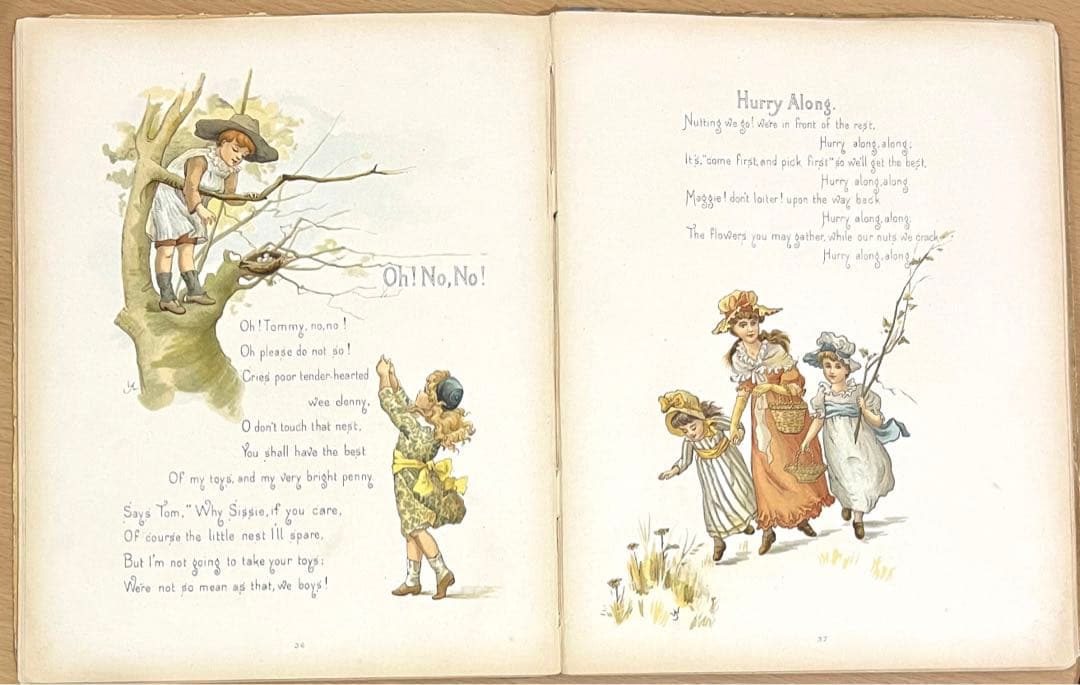 Oh! No, No!
Oh! Tommy, no, no!
Oh please do not so!
Cries poor tender-hearted
wee Jenny,
O don't touch that nest,
You shall have the best
Of my toys, and my very bright penny.
Says Tom, "Why Sissie, if you care,
Of course the little nest I'll spare,
But I'm not going to take your toys:
We're not so mean as that, we boys!
36
Hurry Along.
Nutting we go! we're in front of the rest,
Hurry along, along;
It's, "come first, and pick first" so we'll get the best,
Hurry along, along
Maggie! don't loiter! upon the way back
Hurry along, along;
The flowers you may gather, while our nuts we crack
Hurry along, along,
37